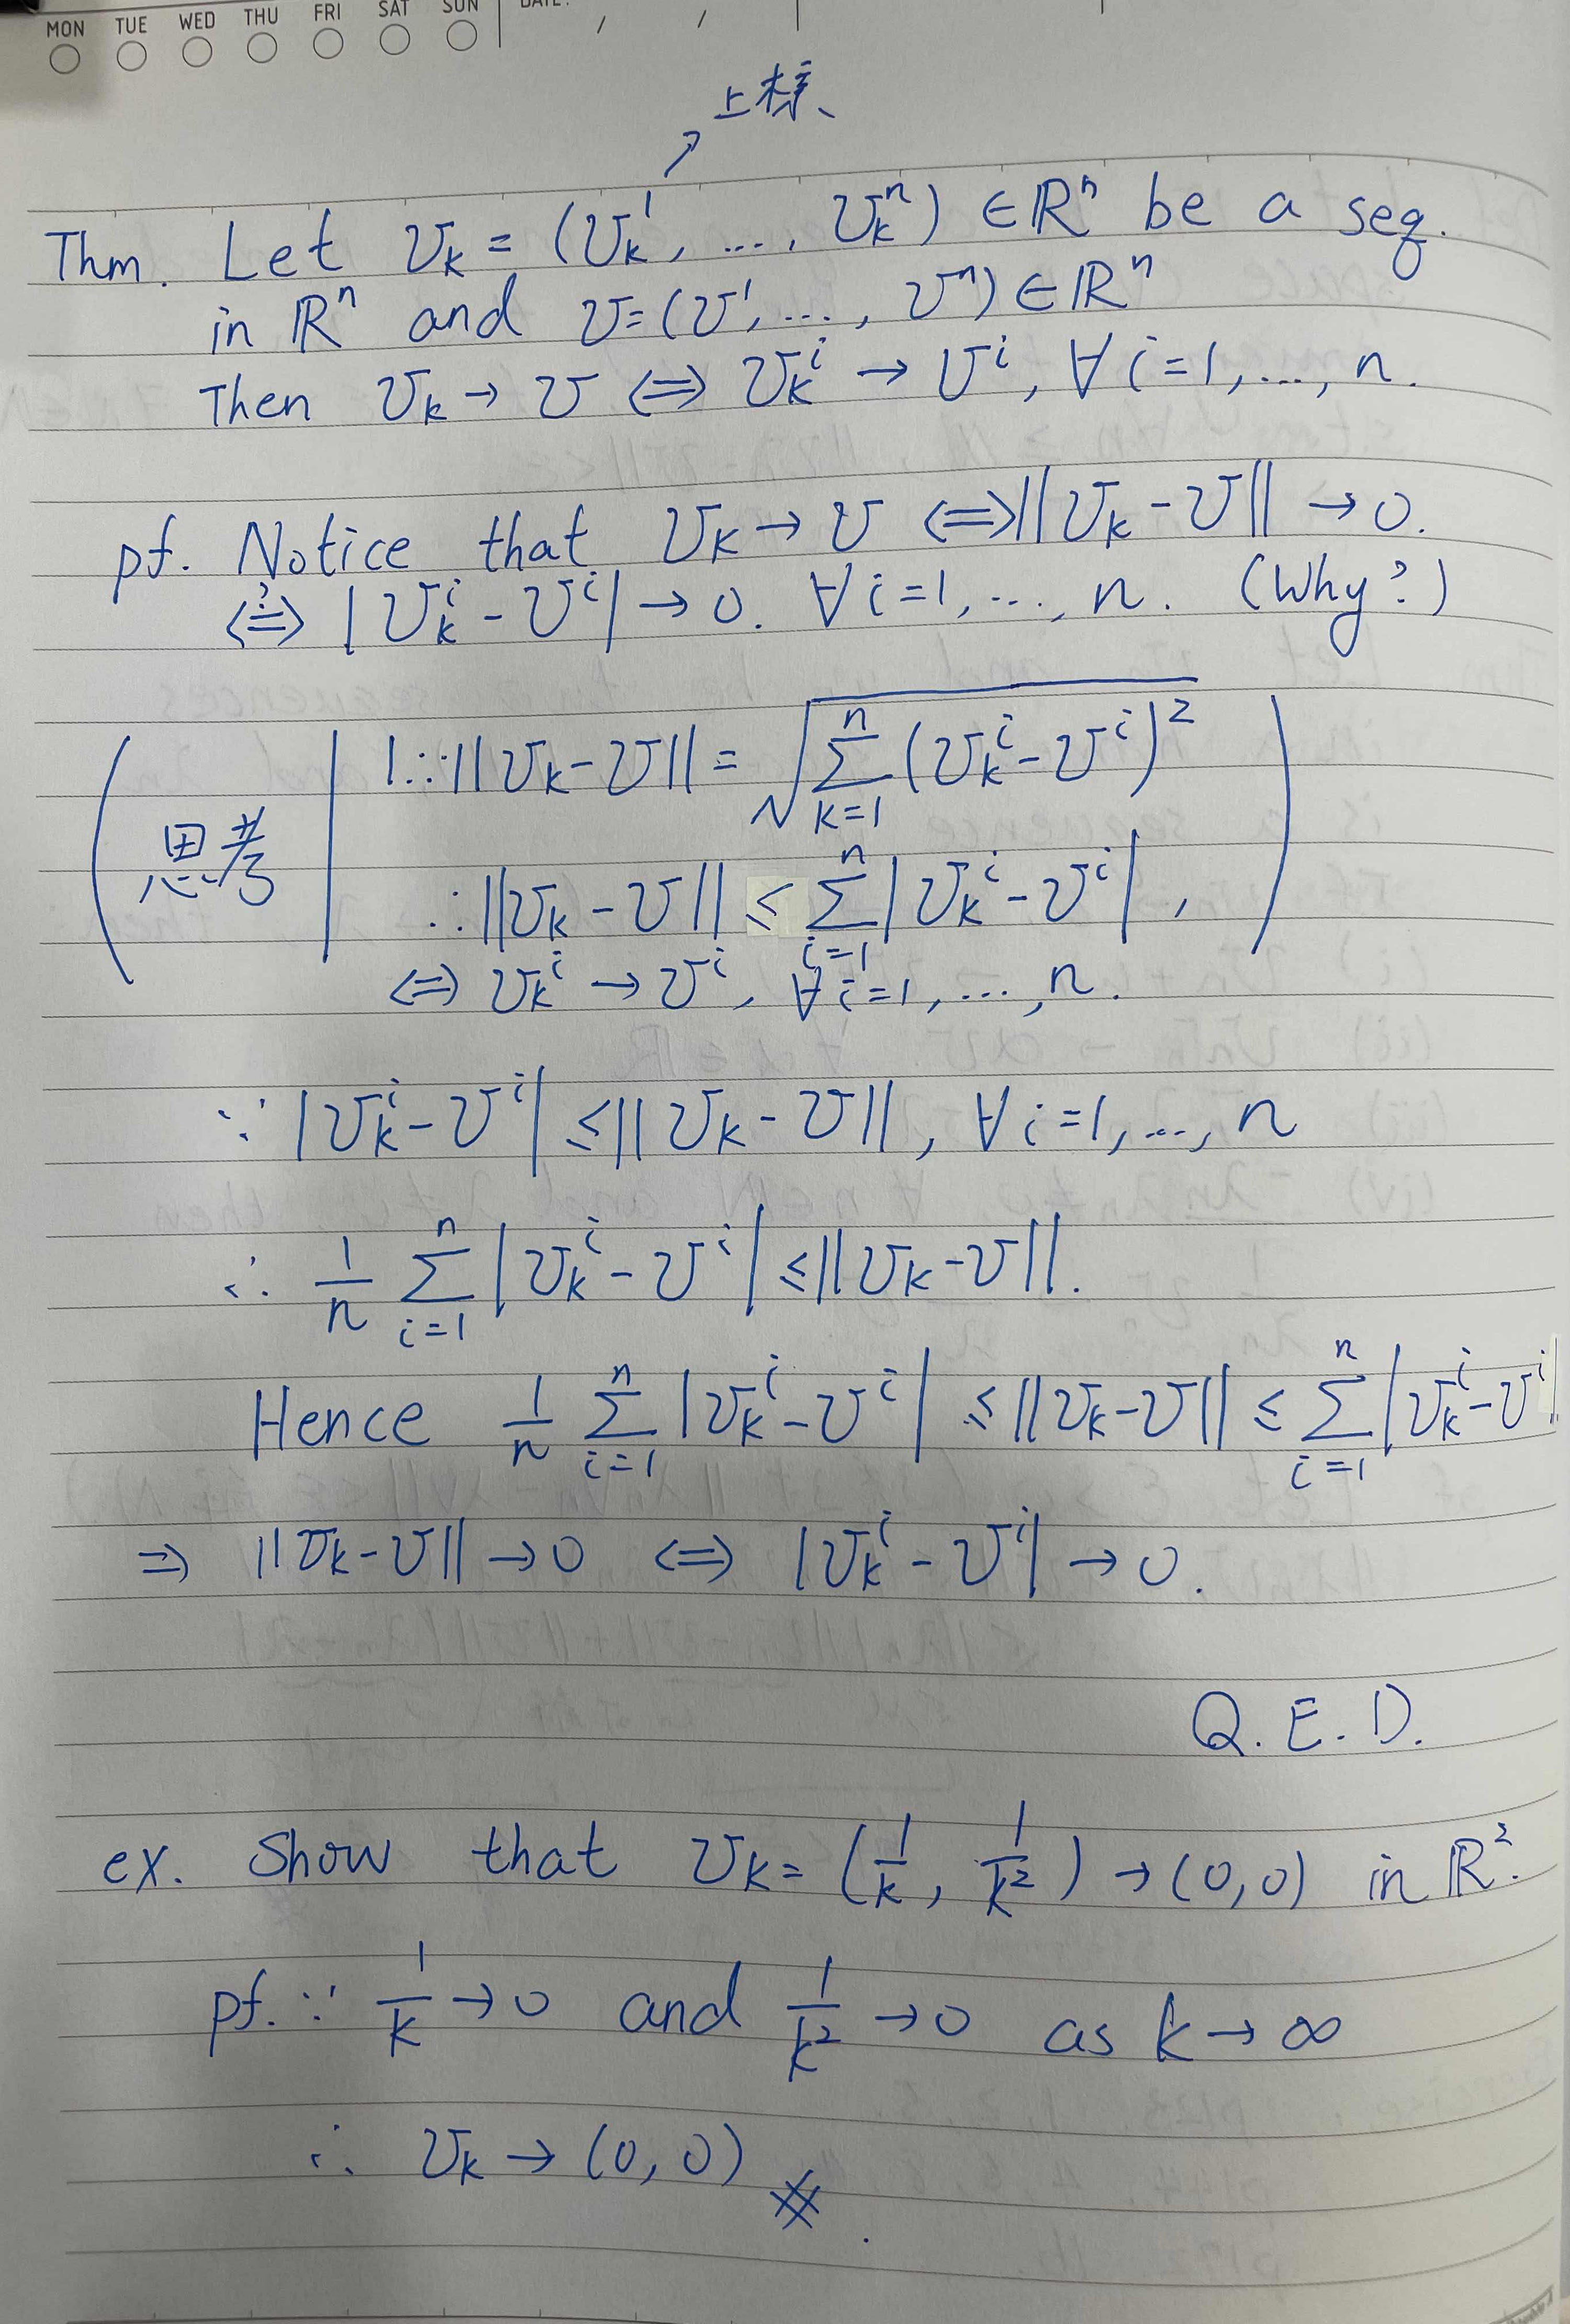 MON TUE WED THU FRI SAT SUN DATE: / /
上標、
Thm. Let v_k = (v_k^1, ..., v_k^n) ∈ ℝ^n be a seq.
in ℝ^n and v = (v^1, ..., v^n) ∈ ℝ^n
Then v_k → v ⇔ v_k^i → v^i, ∀ i = 1, ..., n.
pf. Notice that v_k → v ⇔ ||v_k - v|| → 0.
⇔? |v_k^i - v^i| → 0. ∀ i = 1, ..., n. (Why?)
思考
1. ∵ ||v_k - v|| = √(∑_{k=1}^n (v_k^i - v^i)^2)
∴ ||v_k - v|| ≤ ∑_{i=1}^n |v_k^i - v^i|,
⇔ v_k^i → v^i, ∀ i = 1, ..., n.
∵ |v_k^i - v^i| ≤ ||v_k - v||, ∀ i = 1, ..., n
∴ 1/n ∑_{i=1}^n |v_k^i - v^i| ≤ ||v_k - v||.
Hence 1/n ∑_{i=1}^n |v_k^i - v^i| ≤ ||v_k - v|| ≤ ∑_{i=1}^n |v_k^i - v^i|
⇒ ||v_k - v|| → 0 ⇔ |v_k^i - v^i| → 0.
Q.E.D.
ex. Show that v_k = (1/k, 1/k^2) → (0,0) in ℝ^2.
pf. ∵ 1/k → 0 and 1/k^2 → 0 as k → ∞
∴ v_k → (0,0) ※.